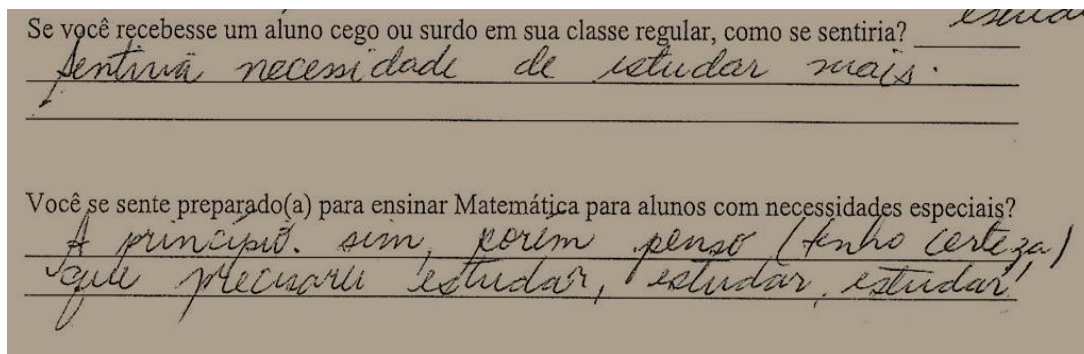 Se você recebesse um aluno cego ou surdo em sua classe regular, como se sentiria?
Sentiria necessidade de estudar mais.
Você se sente preparado(a) para ensinar Matemática para alunos com necessidades especiais?
A princípio. sim, porém penso (tenho certeza)
que precisarei estudar, estudar, estudar